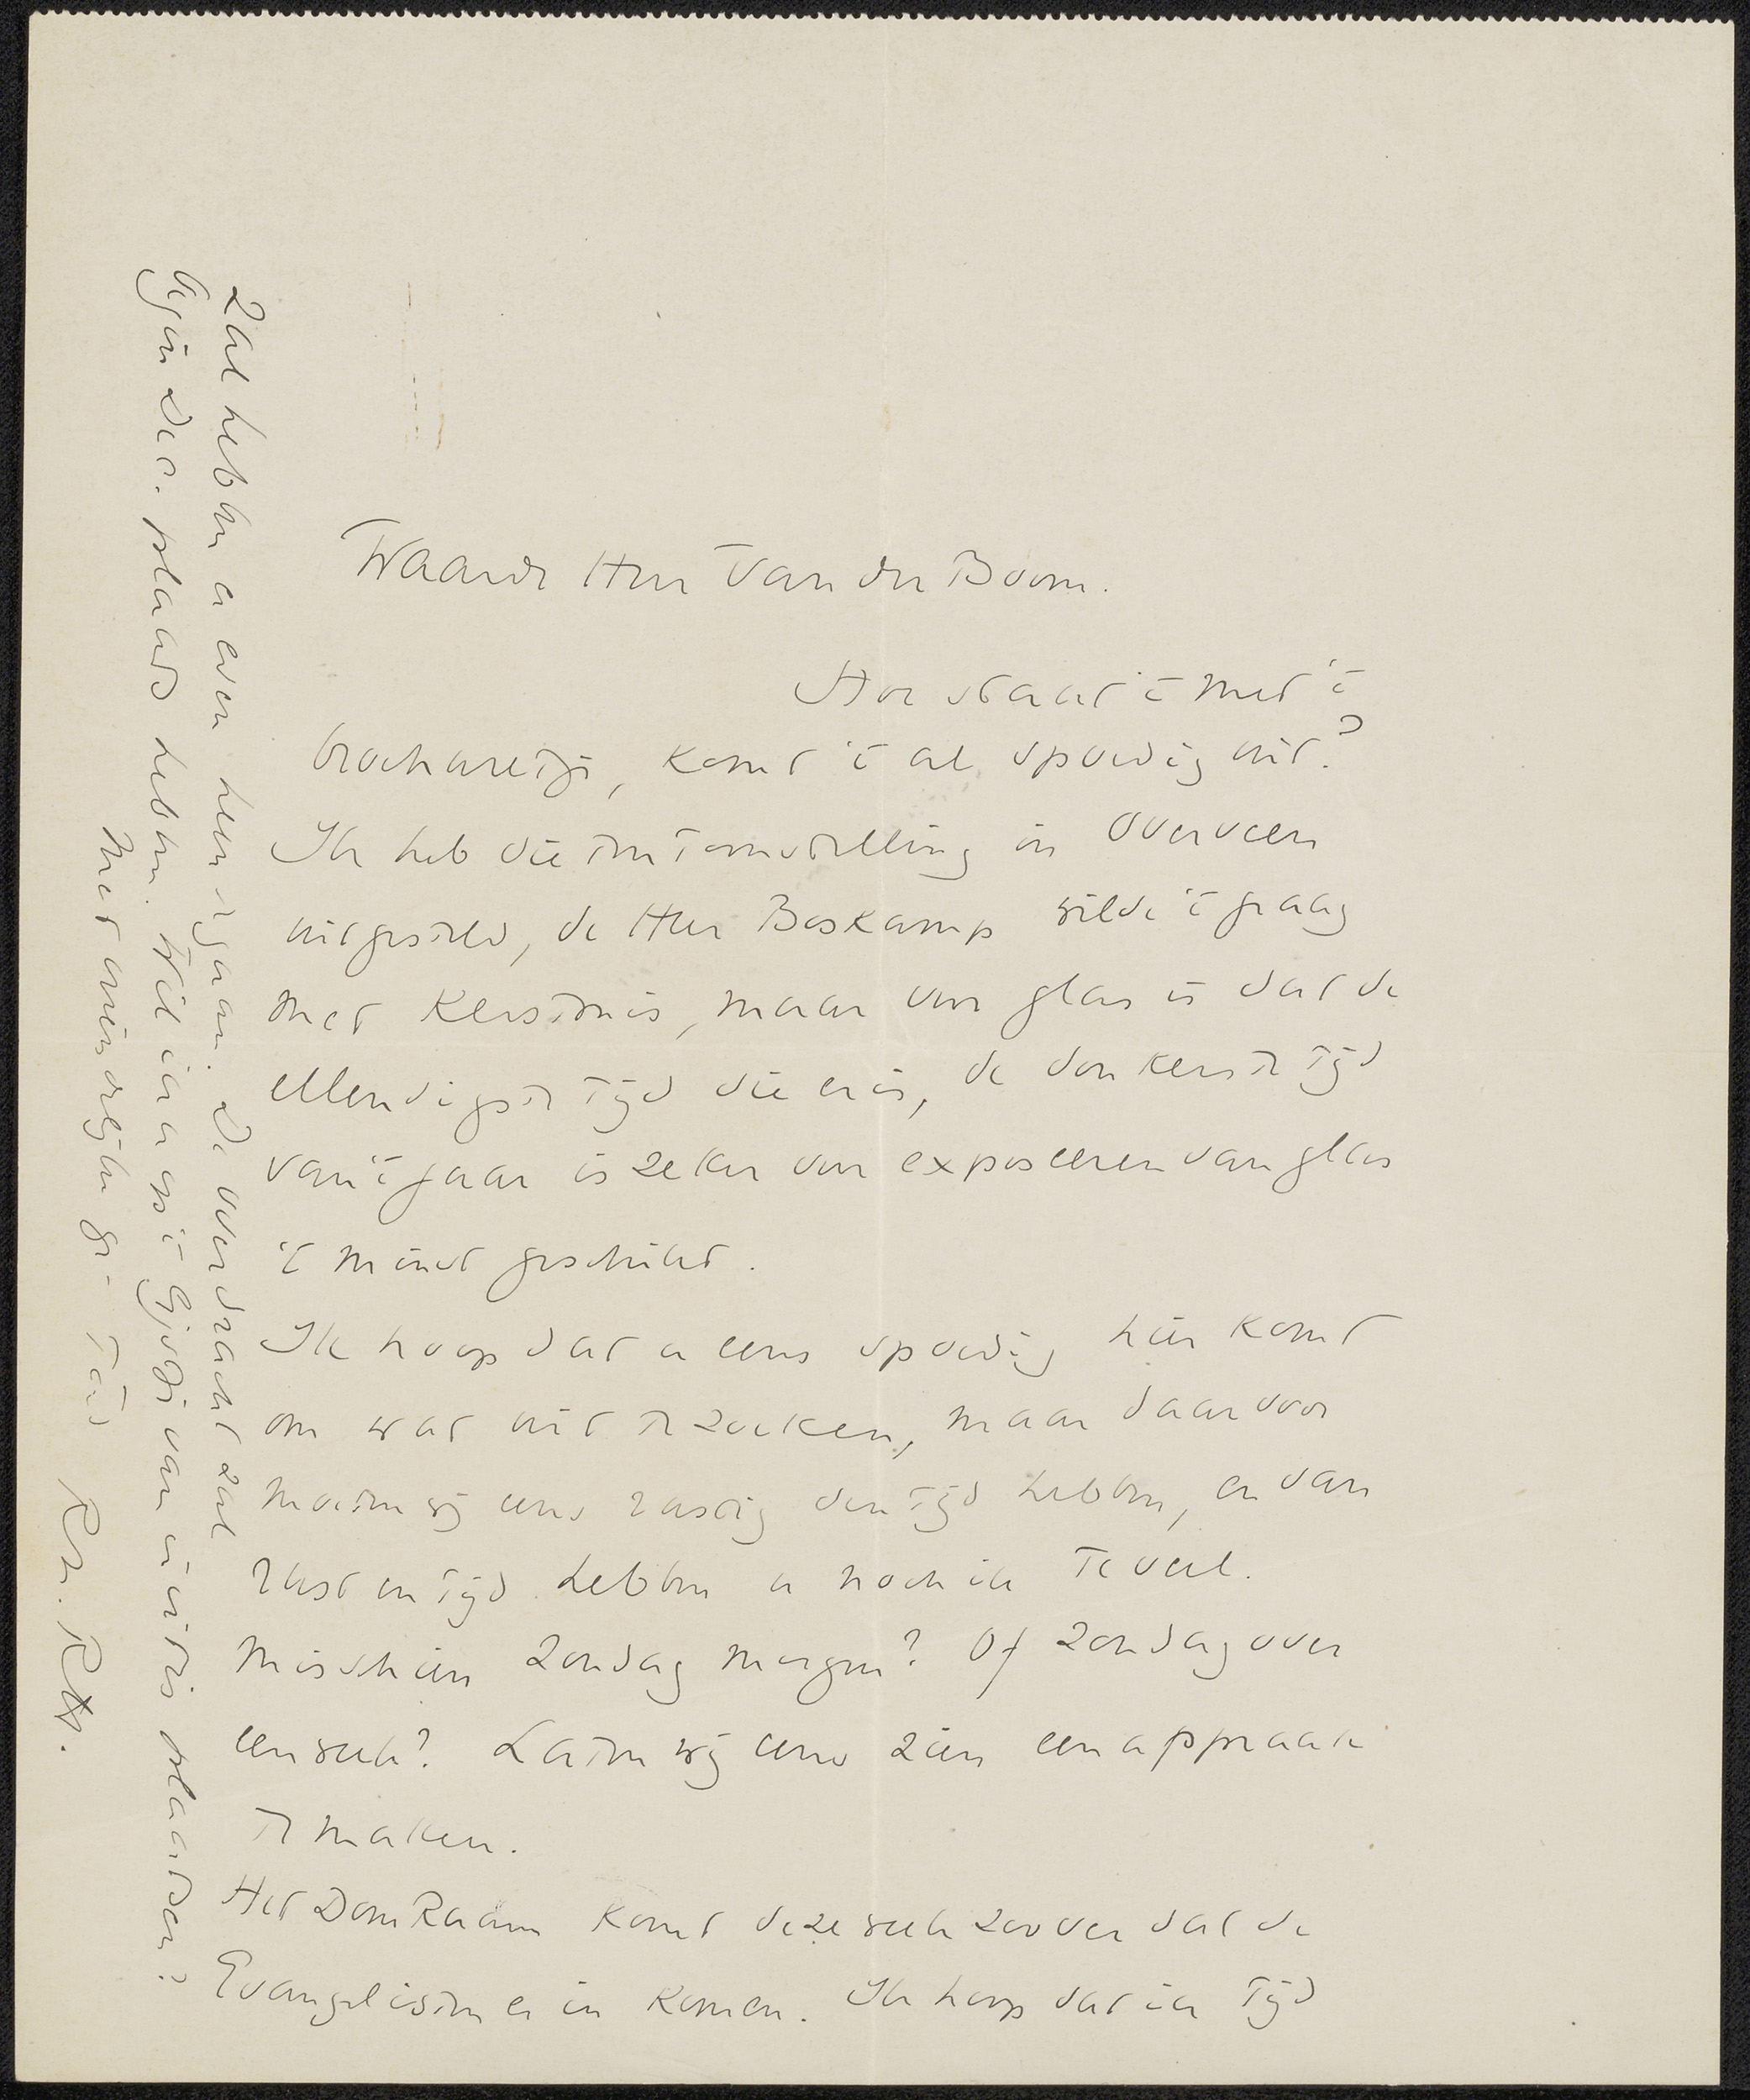 Waarde Heer Van der Boom.
Hoe staat 't met 't
brochuretje, komt 't al spoedig uit?
Ik heb die tentoonstelling in Overveen
uitgesteld, de Heer Boskamp wilde 't graag
met Kerstmis, maar voor glas is dat de
ellendigste tijd die er is, de donkerste tijd
van 't jaar is zeker voor exposeeren van glas
't minst geschikt.
Ik hoop dat u eens spoedig hier komt
om wat uit te zoeken, maar daarvoor
moeten wij eens rustig den tijd hebben, en dan
rust en tijd hebben u noch ik te veel.
Misschien Zondag morgen? Of Zondag over
een week? Laten wij eens zien een appraak
te maken.
Het DomRaam komt deze week zoover dat de
Evangelisten er in komen. Ik hoop dat ik tijd
zal hebben er even heen te gaan. De overdracht zal
begin Dec. plaats hebben. Wil ik u op 't lijstje van invités plaatsen?
Met vriendelijke gr-
R.N. RH.